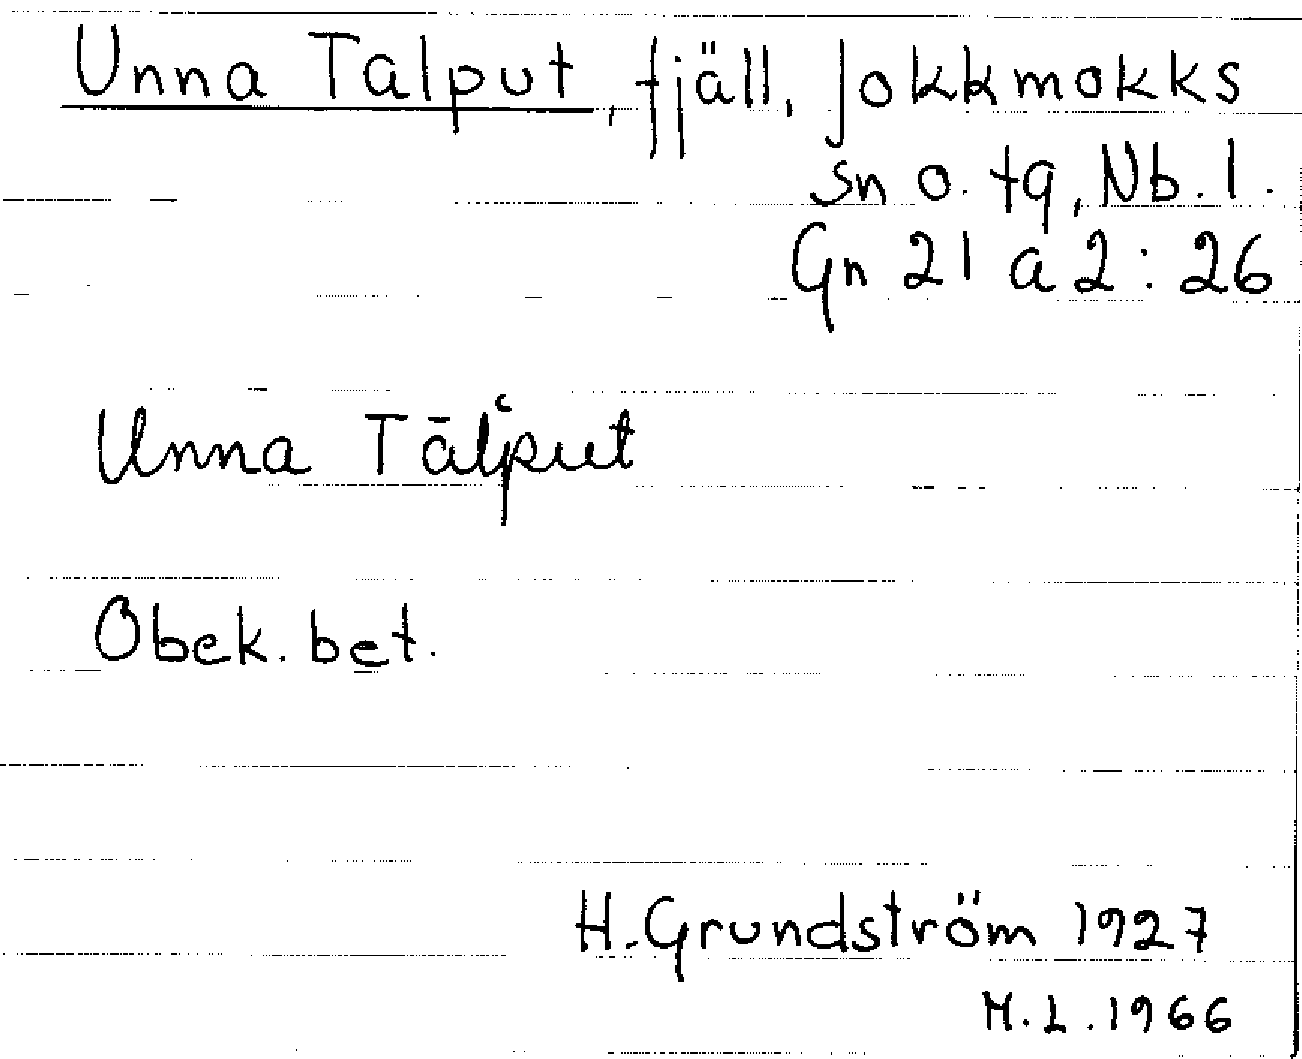 Unna Talput, fjäll, Jokkmokks
sn o. tg, Nb. l.
Gn 21 a 2: 26
Unna Tālʽput
Obek. bet.
H. Grundström 1927
M. L. 1966